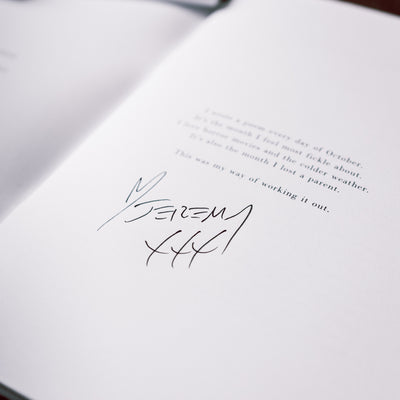 I wrote a poem every day of October.
It's the month I feel most fickle about.
I love horror movies and the colder weather.
It's also the month I lost a parent.
This was my way of working it out.
JEREMY
XXX